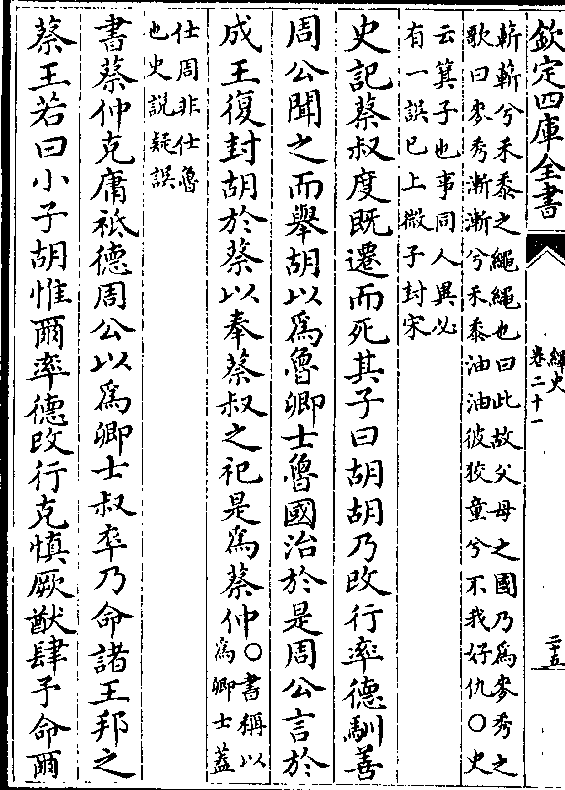 欽定四庫全書
繹史
卷二十一
二十五
蔪蔪兮禾黍之繩繩也曰此故父母之國乃為麥秀之
歌曰麥秀漸漸兮禾黍油油彼狡童兮不我好仇○史
云箕子也事同人異必
有一誤已上微子封宋
史記蔡叔度既遷而死其子曰胡胡乃改行率德馴善
周公聞之而舉胡以為魯卿士魯國治於是周公言於
成王復封胡於蔡以奉蔡叔之祀是為蔡仲○書稱以
為卿士蓋
仕周非仕魯
也史說疑誤
書蔡仲克庸祗德周公以為卿士叔卒乃命諸王邦之
蔡王若曰小子胡惟爾率德改行克慎厥猷肆予命爾